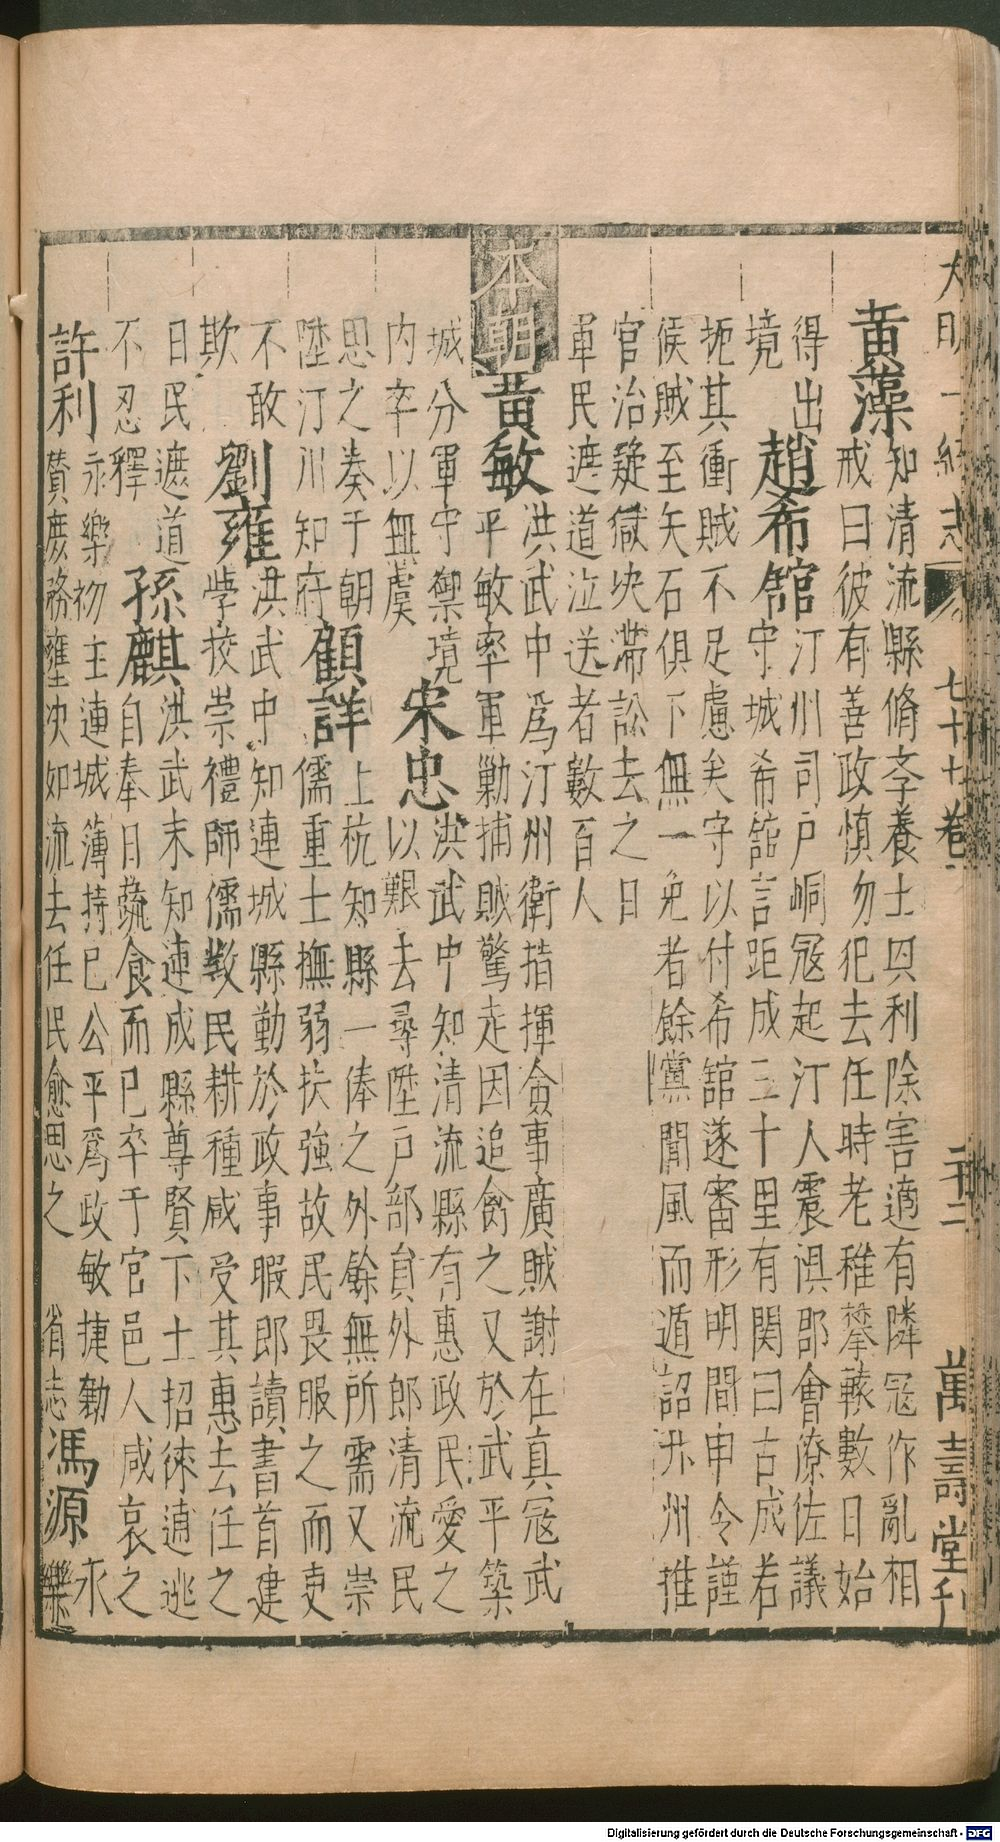 大明一統志 七十七卷 萬壽堂刊
黃藻知清流縣脩孝養士興利除害適有隣寇作亂相
戒曰彼有善政慎勿犯去任時老稚攀轅數日始
得出趙希舘汀州司戶峒寇起汀人震俱郡會僚佐議
守城希舘言距成三十里有関曰古成若
境
扼其衝賊不足慮矣守以付希舘遂審形明間申令謹
候賊至矢石俱下無一免者餘黨聞風而遁詔升州推
官治疑獄决滯訟去之日
軍民遮道泣送者數百人
本朝黃敏洪武中爲汀州衛指揮僉事廣賊謝在真冦武
平敏率軍勦捕賊驚走因追禽之又於武平築
城分軍守禦境
內卒以無虞
宋忠洪武中知清流縣有惠政民愛之
以艱去尋陞戶部員外郎清流民
思之奏于朝
陞汀州知府
顧詳上杭知縣一俸之外餘無所需又崇
儒重士撫弱扶強故民畏服之而吏
不敢
欺
劉雍洪武中知連城縣勤於政事暇郎讀書首建
學挍崇禮師儒教民耕種咸受其惠去任之
日民遮道
不忍釋
孫麒洪武末知連成縣尊賢下士招徠逋逃
自奉日蔬食而已卒于官邑人咸哀之
許利永樂初主連城簿持己公平爲政敏捷勤
贊庶務壅决如流去任民愈思之 省志馮源永
樂